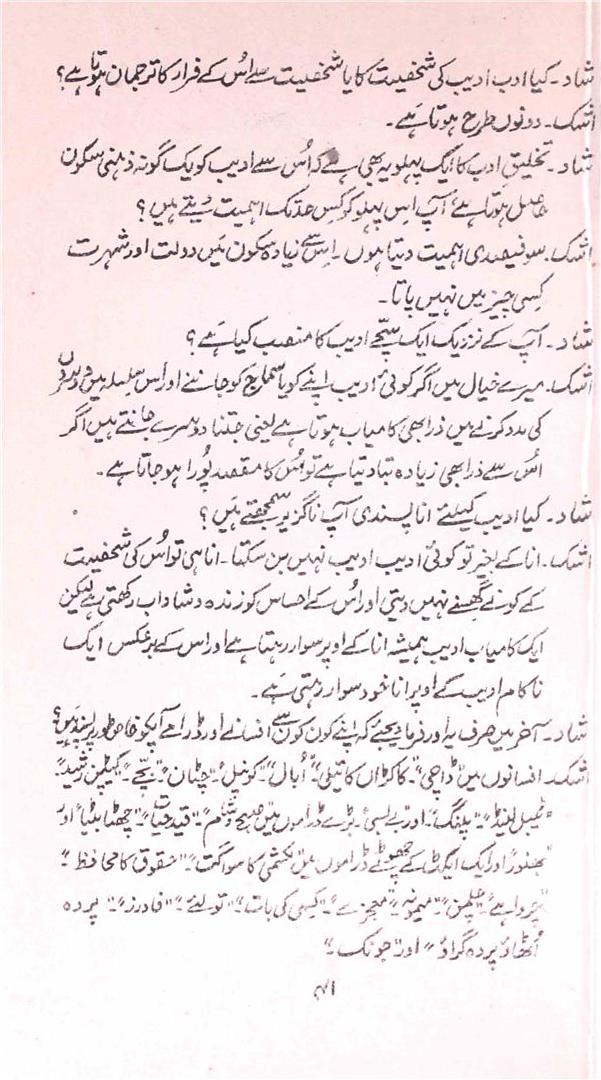 شاد۔ کیا ادب ادیب کی شخصیت کا یا شخصیت سے اُس کے فرار کا ترجمان ہوتا ہے؟
اشک۔ دونوں طرح ہوتا ہے۔
شاد۔ تخلیقِ ادب کا ایک پہلو یہ بھی ہے کہ اُس سے ادیب کو یک گونہ ذہنی سکون
حاصل ہوتا ہے، آپ اس پہلو کو کس حد تک اہمیت دیتے ہیں؟
اشک۔ سو فیصدی اہمیت دیتا ہوں۔ اِس سے زیادہ سکون میں دولت اور شہرت
کِسی چیز میں نہیں پاتا۔
شاد۔ آپ کے نزدیک ایک سچّے ادیب کا منصب کیا ہے؟
اشک۔ میرے خیال میں اگر کوئی ادیب اپنے کو یا سماج کو جاننے اور اس سلسلہ میں دوسروں
کی مدد کرنے میں ذرا بھی کامیاب ہوتا ہے یعنی جتنا دوسرے جانتے ہیں اگر
اُس سے ذرا بھی زیادہ بتا دیتا ہے تو اُس کا مقصد پُورا ہو جاتا ہے۔
شاد۔ کیا ادیب کیلئے انا پسندی آپ ناگزیر سمجھتے ہیں؟
اشک۔ انا کے بغیر تو کوئی ادیب ادیب نہیں بن سکتا۔ انا ہی تو اُس کی شخصیت
کے کونے گھِسنے نہیں دیتی اور اُس کے احساس کو زندہ و شاداب رکھتی ہے لیکن
ایک کامیاب ادیب ہمیشہ انا کے اوپر سوار رہتا ہے اور اس کے برعکس ایک
ناکام ادیب کے اوپر انا خود سوار رہتی ہے۔
شاد۔ آخر میں صرف یہ اور فرما دیجئے کہ اپنے کون کون سے افسانے اور ڈرامے آپکو خاص طور پر پسند ہیں؟
اشک۔ افسانوں میں "ڈاچی"۔ "کاکڑاں کا تیلی"۔ "اُبال"۔ "کونپل"۔ "چٹان"۔ "بچّے"۔ "کیپٹن رشید"۔
"ٹیبل لینڈ"۔ "پلنگ"۔ اور بے بسی۔ بڑے ڈراموں میں "صبح و شام"۔ "قیدِ حیات"۔ "چھٹا بیٹا" اور
"بھنور" اور ایک ایکٹ کے چھوٹے ڈراموں میں "لکشمی کا سواگت"۔ "حقوق کا محافظ"۔
"چرواہے"۔ "چلمن"۔ "میمونہ"۔ "معجزے"۔ "کیسی کی بات"۔ "تولئے"۔ "قادرز"۔ "پردہ
اُٹھاؤ پردہ گراؤ" اور "جونک"۔